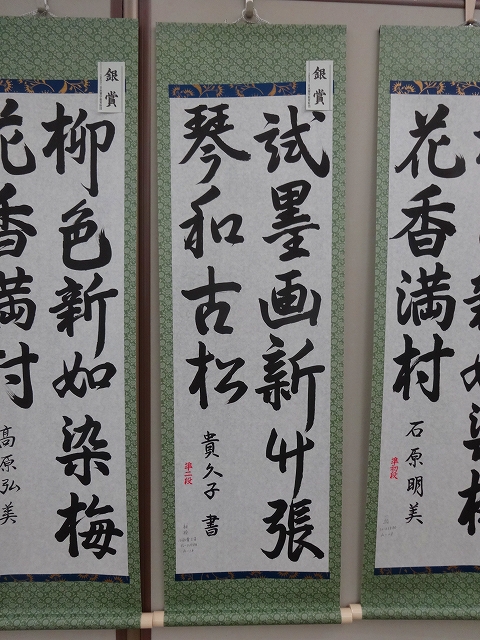 花香満村
石原明美
準初段
銀賞
試墨画新竹張
琴和古松
貴久子書
準二段
銀賞
柳色新如染梅
花香満村
高原弘美